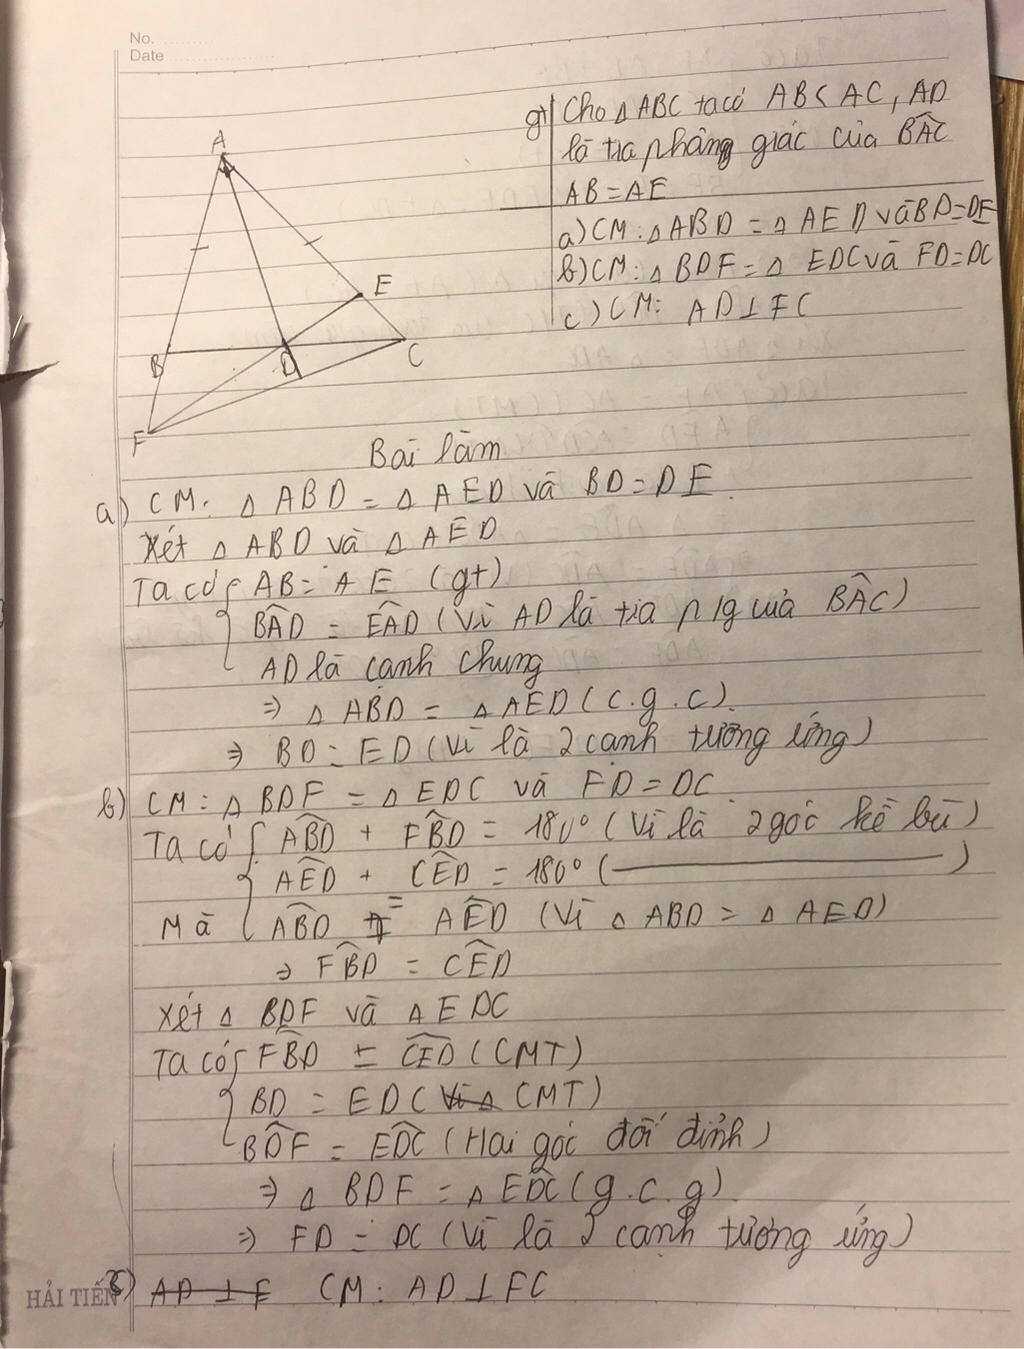 No.
Date
gt Cho △ABC ta có AB < AC, AD
là tia phâng giác của BAC^
AB = AE
a) CM: △ABD = △AED và BD = DE
b) CM: △BDF = △EDC và FD = DC
c) CM: AD ⊥ FC
A
E
B
D
C
F
Bài làm
a) CM: △ABD = △AED và BD = DE.
Xét △ABD và △AED
Ta có { AB = AE (gt)
BAD^ = EAD^ (Vì AD là tia p/g của BAC^)
AD là cạnh chung
⇒ △ABD = △AED (c.g.c).
⇒ BD = ED (Vì là 2 cạnh tương ứng)
b) CM: △BDF = △EDC và FD = DC
Ta có { ABD^ + FBD^ = 180° (Vì là 2 góc kề bù)
AED^ + CED^ = 180° (———)
Mà ABD^ = AED^ (Vì △ABD = △AED)
⇒ FBD^ = CED^
Xét △BDF và △EDC
Ta có { FBD^ = CED^ (CMT)
BD = ED (Vì △ CMT)
BDF^ = EDC^ (Hai góc đối đỉnh)
⇒ △BDF = △EDC (g.c.g)
⇒ FD = DC (Vì là 2 cạnh tương ứng)
c) AD ⊥ F CM: AD ⊥ FC
HẢI TIẾN